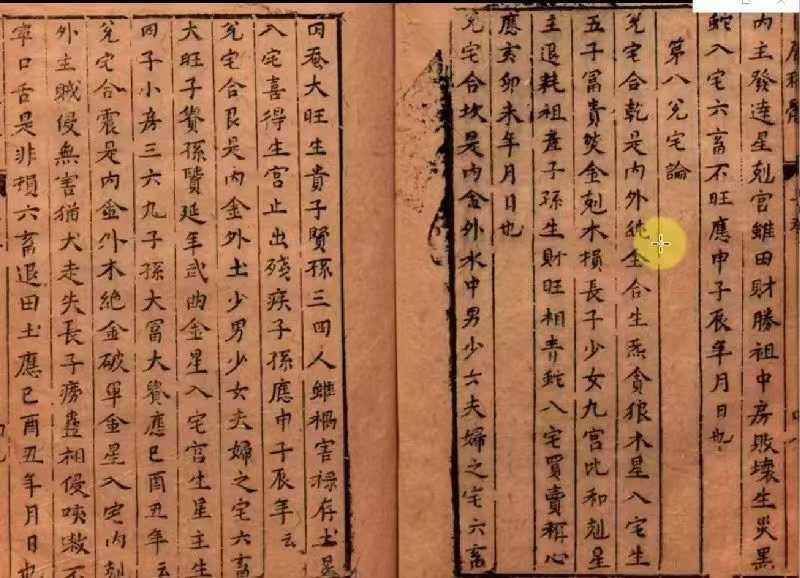 內主發達星剋宮雖田財勝祖中房敗壞生災黑
蛇入宅六畜不旺應申子辰年月日也
第八兌宅論
兌宅合乾是內外純金合生炁貪狼木星入宅生
五子冨貴炎金剋木損長子少女九宮比和剋星
主退耗祖產子孫生財旺相青蛇入宅買賣稱心
應亥卯未年月日也
兌宅合坎是內金外水中男少女夫婦之宅六畜
田蚕大旺生貴子賢孫三四人雖禍害祿存土星
入宅喜得生宮止出殘疾子孫應申子辰年云
兌宅合艮是內金外土少男少女夫婦之宅六畜
大旺子貴孫賢延年武曲金星入宅宮生星主生
四子小房三六九子孫大冨大貴應巳酉丑年云
兌宅合震是內金外木絕金破軍金星入宅內剋
外主賊侵無害猶犬走失長子癆蠱相侵咳嗽不
寧口舌是非損六畜退田土應巳酉丑年月日也